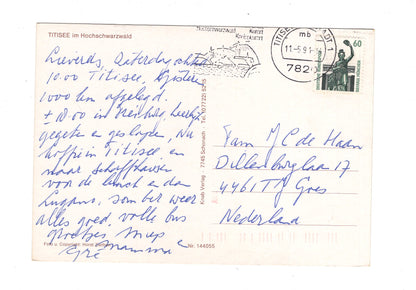 TITISEE im Hochschwarzwald
Lieverds, Zaterdagochtend
10.00 Titisee, gisteren
1000 km afgelegd.
± 18.00 in
gegeten en geslapen, Nu
koffie in Titisee en
naar Schaffhausen
voor de lunch en dan
Lugano, somber weer
alles goed, volle bus
groetjes Miep
Gré Mamma
TITISEE-
mb
11.-5.91.-
782
60
Fam M J C de Haan
Dillenburglaan 17
4461 TJ Goes
Nederland
Knab Verlag 7745 Schonach Tel. (07722) 5255
Nr. 144055